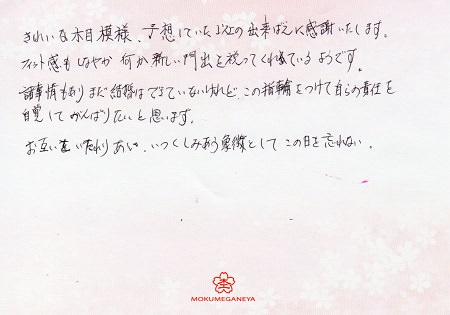 きれいな木目模様、予想していた以上の出来ばえに感謝いたします。
フィット感もしなやか 何か新しい門出を祝ってくれているようです。
諸事情もありまだ結婚はできていないけれど、この指輪をつけて自らの責任を
自覚してがんばりたいと思います。
お互いをいたわりあい、いつくしみあう象徴として この日を忘れない。
MOKUMEGANEYA